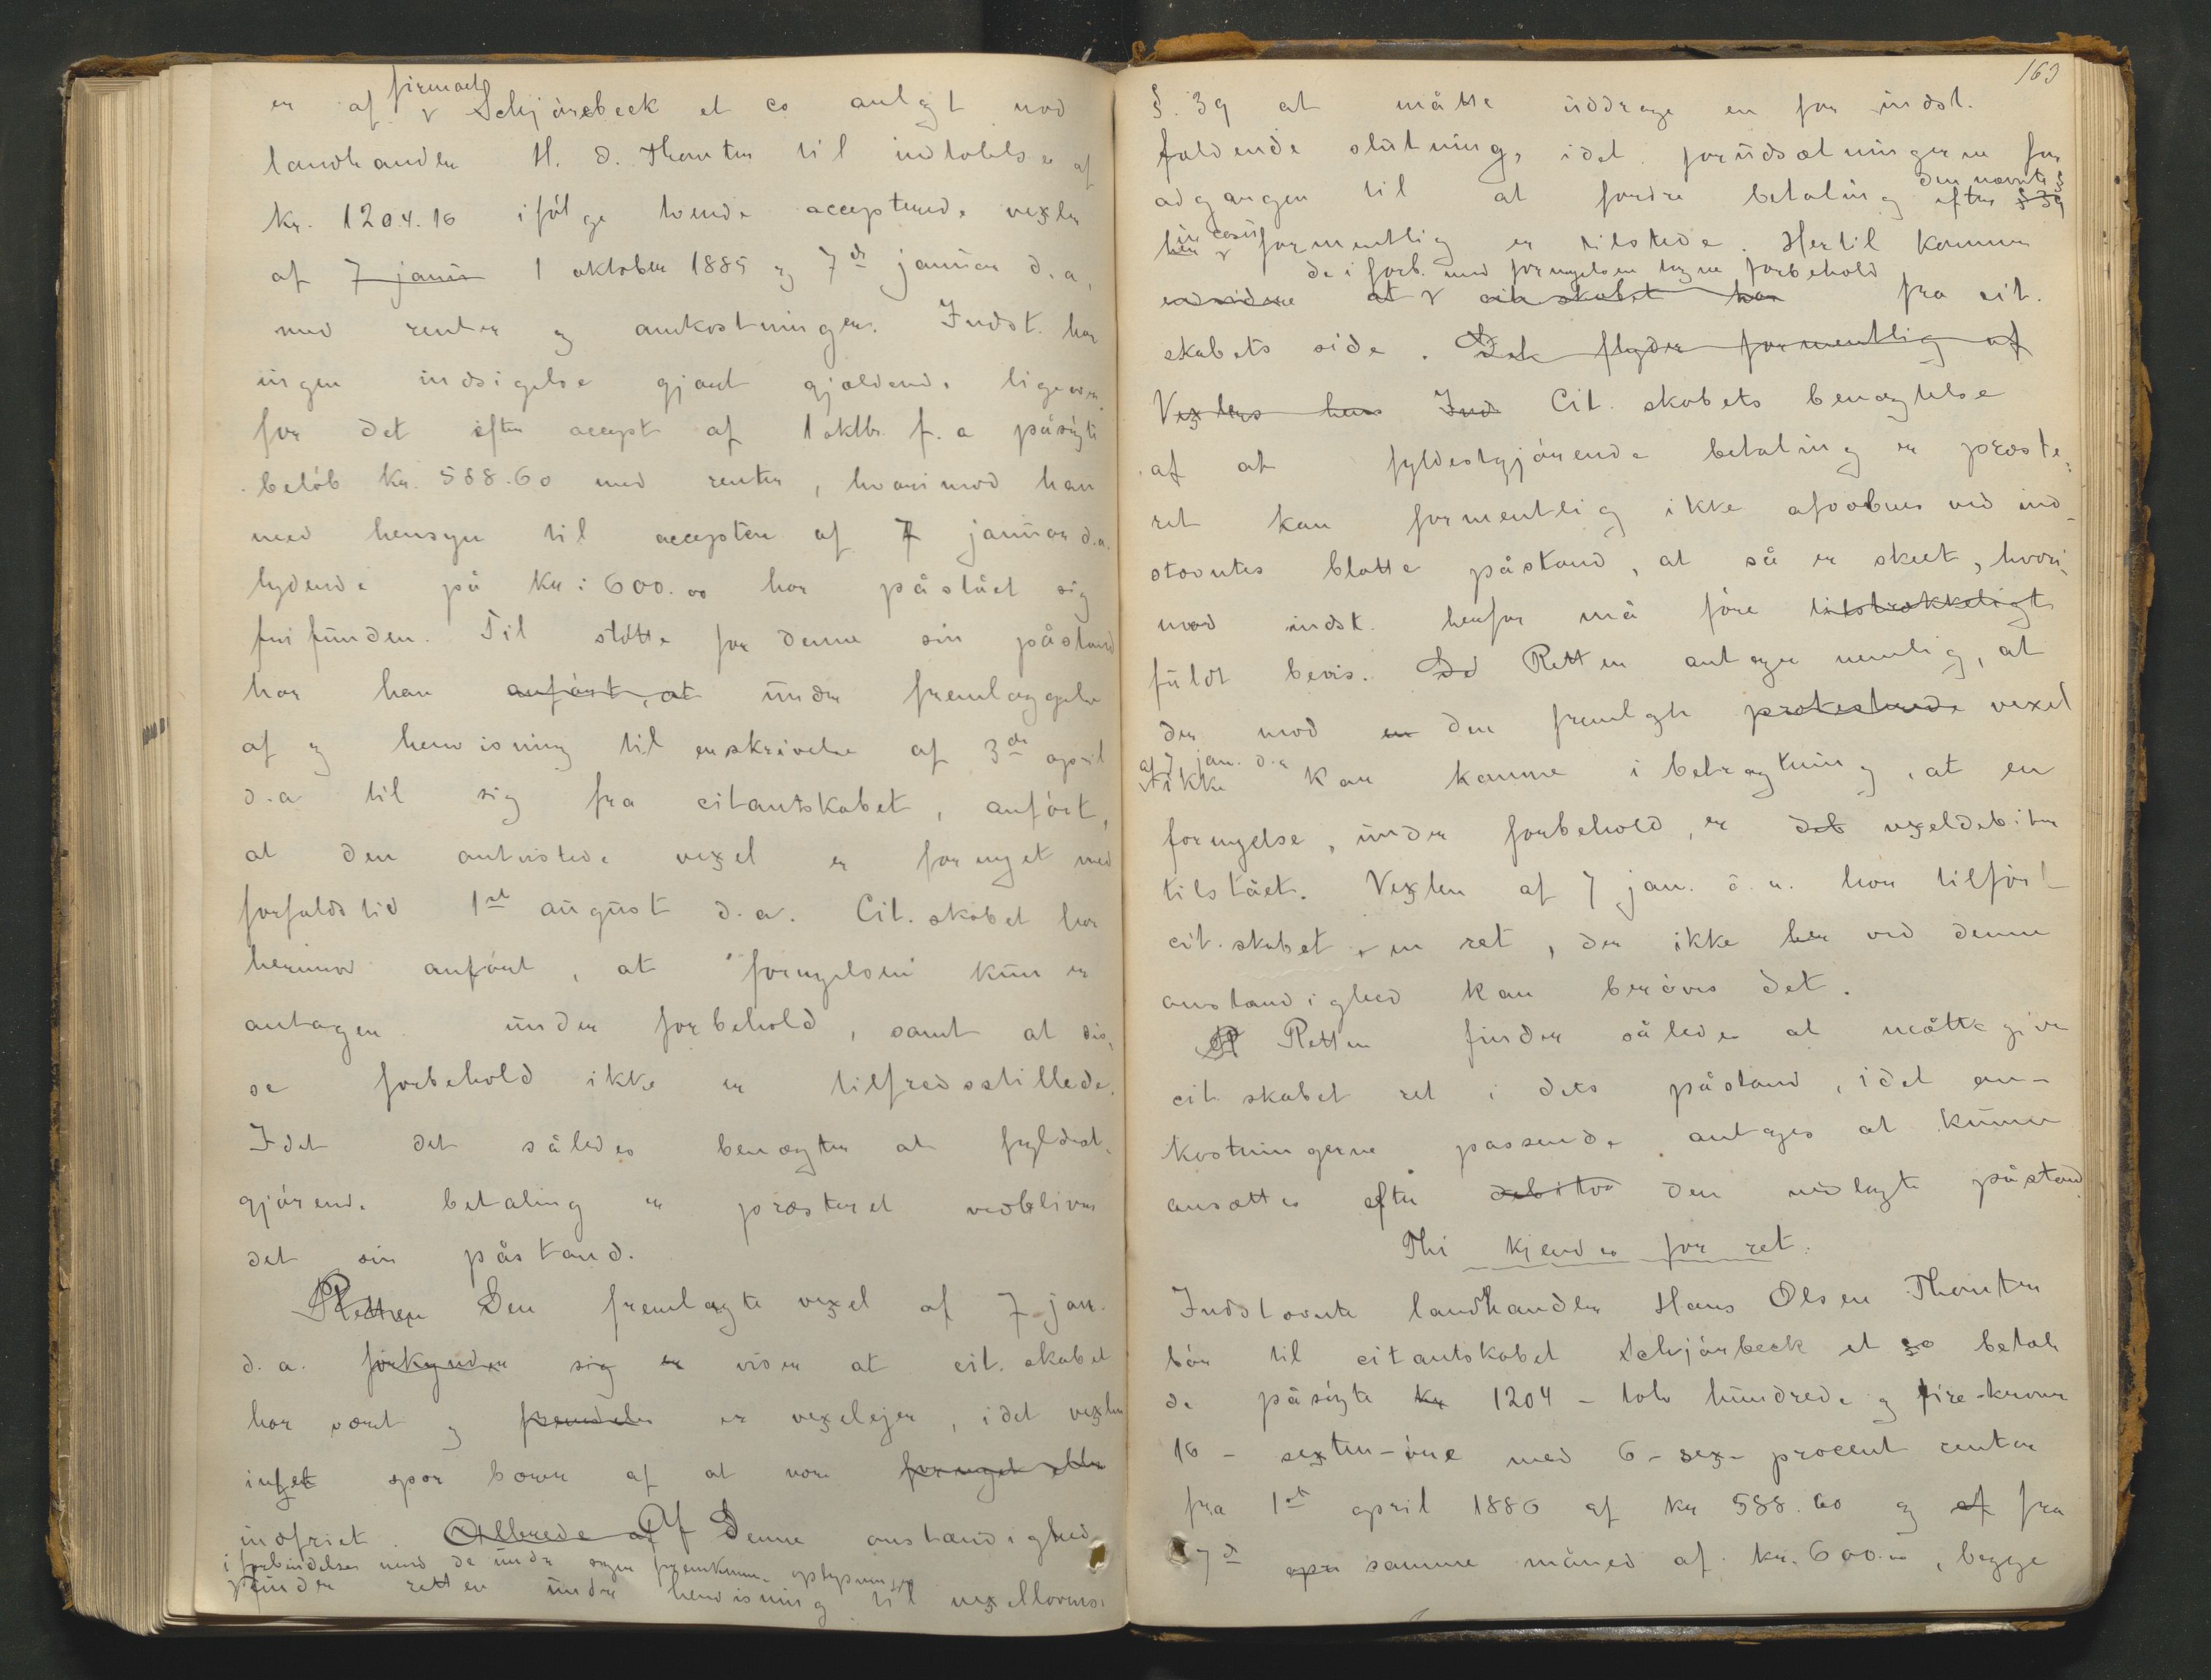 er af firmaet Schjørebeck et co anlgt mod
landhandler H. O. Thomter til indtalelse af
kr. 1204.16 ifølge tvende accepterede vexler
af 7 janu 1 oktober 1885 og 7de januar d.a,
med renter og omkostninger. Indst. har
ingen indsigelse gjort gjældende ligeovr.
for det efter accept af 1 oktbr. f. a påsøgte
beløb kr. 588.60 med renter, hvorimod han
med hensyn til accepten af 7 januar d.a.
lydende på kr: 600.00 har påstået sig
frifunden. Til støtte for denne sin påstand
har han anført, at under fremlæggelse
af og henvisning til en skrivelse af 3de april
d.a til sig fra citantskabet, anført,
at den omtvistede vexel er fornyet med
forfaldstid 1st august d.a. Cit. skabet har
herimod anført, at "fornyelsen" kun er
antagen under forbehold, samt at dis-
se forbehold ikke er tilfredsstillede.
Idet det således benægter at fyldest-
gjørende betaling er præsteret vedbliver
det sin påstand.
Retten Den fremlagte vexel af 7 jan.
d.a. forkynder sig er viser at cit. skabet
har været og fremdeles er vexelejer, idet vexlen
intet spor bærer af at være fornyet eller
indfriet. Allerede af Af Denne omstændighed
i forbindelse med de under sagen fremkomne oplysninger
finder retten under henvisning til vexellovens
163
§. 39 at måtte uddrage en for indst.
faldende slutning, idet forudsætningerne for
adgangen til at fordre betaling efter § 39 den nævnte §
her in casu formentlig er tilstede. Hertil kommer
de i forb. med fornyelsen tagne forbehold
endvidere at citskabet har fra cit.
skabets side. Det flyder formentlig af
Vexlens hen Ind Cit. skabets benægtelse
af at fyldestgjørende betaling er præste-
ret kan formentlig ikke afvæbnes ved ind-
stævntes blotte påstand, at så er skeet, hvori-
mod indst. herfor må føre tilstrækkeligt
fuldt bevis. Dd Retten antager nemlig, at
der mod en den fremlagte protesterede vexel
af 7 jan. d.a
ikke kan komme i betragtning, at en
fornyelse, under forbehold, er det vexeldebitor
tilstået. Vexlen af 7 jan. d. a. har tilført
cit. skabet en ret, der ikke her ved denne
omstændighed kan berøves det.
R Retten finder således at måtte give
cit skabet ret i dets påstand, idet om-
kostningerne passende antages at kunne
ansættes efter debitor den nedlagte påstand.
Thi kjendes for ret:
Indstævnte landhandler Hans Olsen Thomter
bør til citantskabet Schjørbeck et co betale
de påsøgte kr 1204 - tolv hundrede og fire - kroner
16 - sexten - øre med 6 - sex - procent renter
fra 1st april 1886 af kr 588.60 og af fra
7de apri samme måned af kr. 600.00, begge